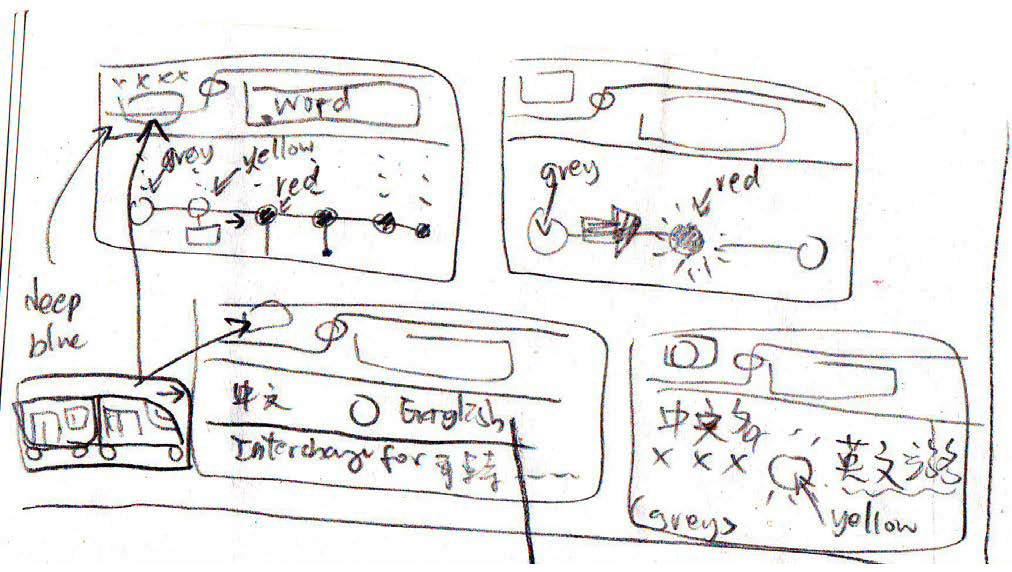 x x x x
Word
grey
yellow
red
grey
red
deep
blue
中文
English
Interchange for
中文名
x x x
英文
(grey)
yellow